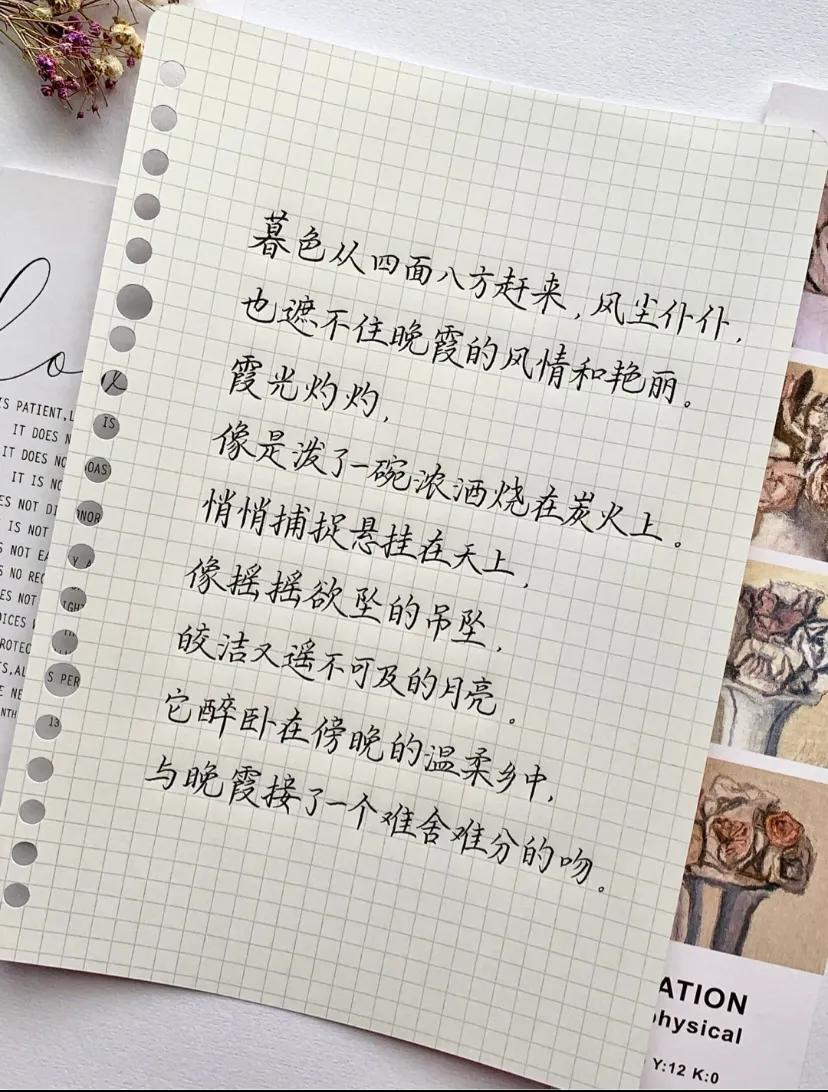 暮色从四面八方赶来，风尘仆仆，
也遮不住晚霞的风情和艳丽。
霞光灼灼，
像是泼了一碗浓酒烧在炭火上。
悄悄捕捉悬挂在天上，
像摇摇欲坠的吊坠，
皎洁又遥不可及的月亮。
它醉卧在傍晚的温柔乡中，
与晚霞接了一个难舍难分的吻。
lo
IS PATIENT, L
IT DOES N
IT DOES NO
IT IS NO
ES NOT DI
IS NOT
S NOT EA
S NO REC
ES NOT
OICES
ROTEC
TS, AL
E NE
NTH
X
IS
OAS
ONOR
Y A
IGHT
S PER
13
ATION
physical
Y:12 K:0